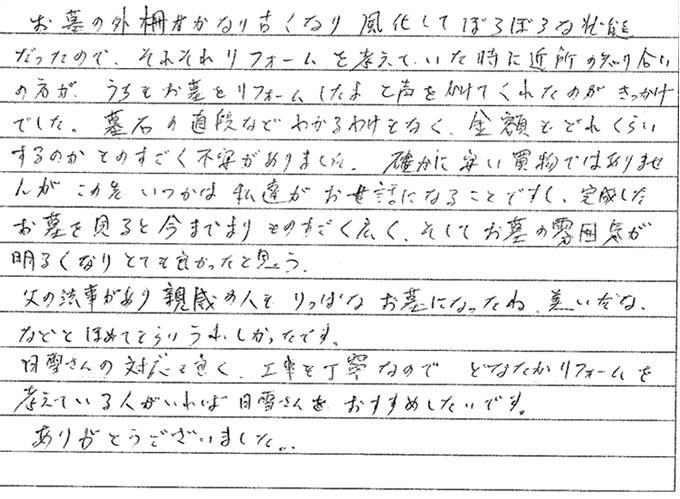 お墓の外柵がかなり古くなり 風化してぼろぼろな状態
だったので、そろそろリフォームを考えていた時に近所の知り合い
の方が、うちもお墓をリフォームしたよと声をかけてくれたのがきっかけ
でした。墓石の値段などわかるわけもなく、金額もどれくらい
するのかものすごく不安がありました。確かに安い買物ではありませ
んが この先 いつかは私達がお世話になることですし、完成した
お墓を見ると今までよりものすごく広く、そしてお墓の雰囲気が
明るくなりとても良かったと思う。
父の法事があり親戚の人も りっぱな お墓になったね、美いだな、
などとほめてもらいうれしかったです。
日雪さんの対応も良く、工事も丁寧なので どなたかリフォームを
考えている人がいれば日雪さんを おすすめしたいです。
ありがとうございました。